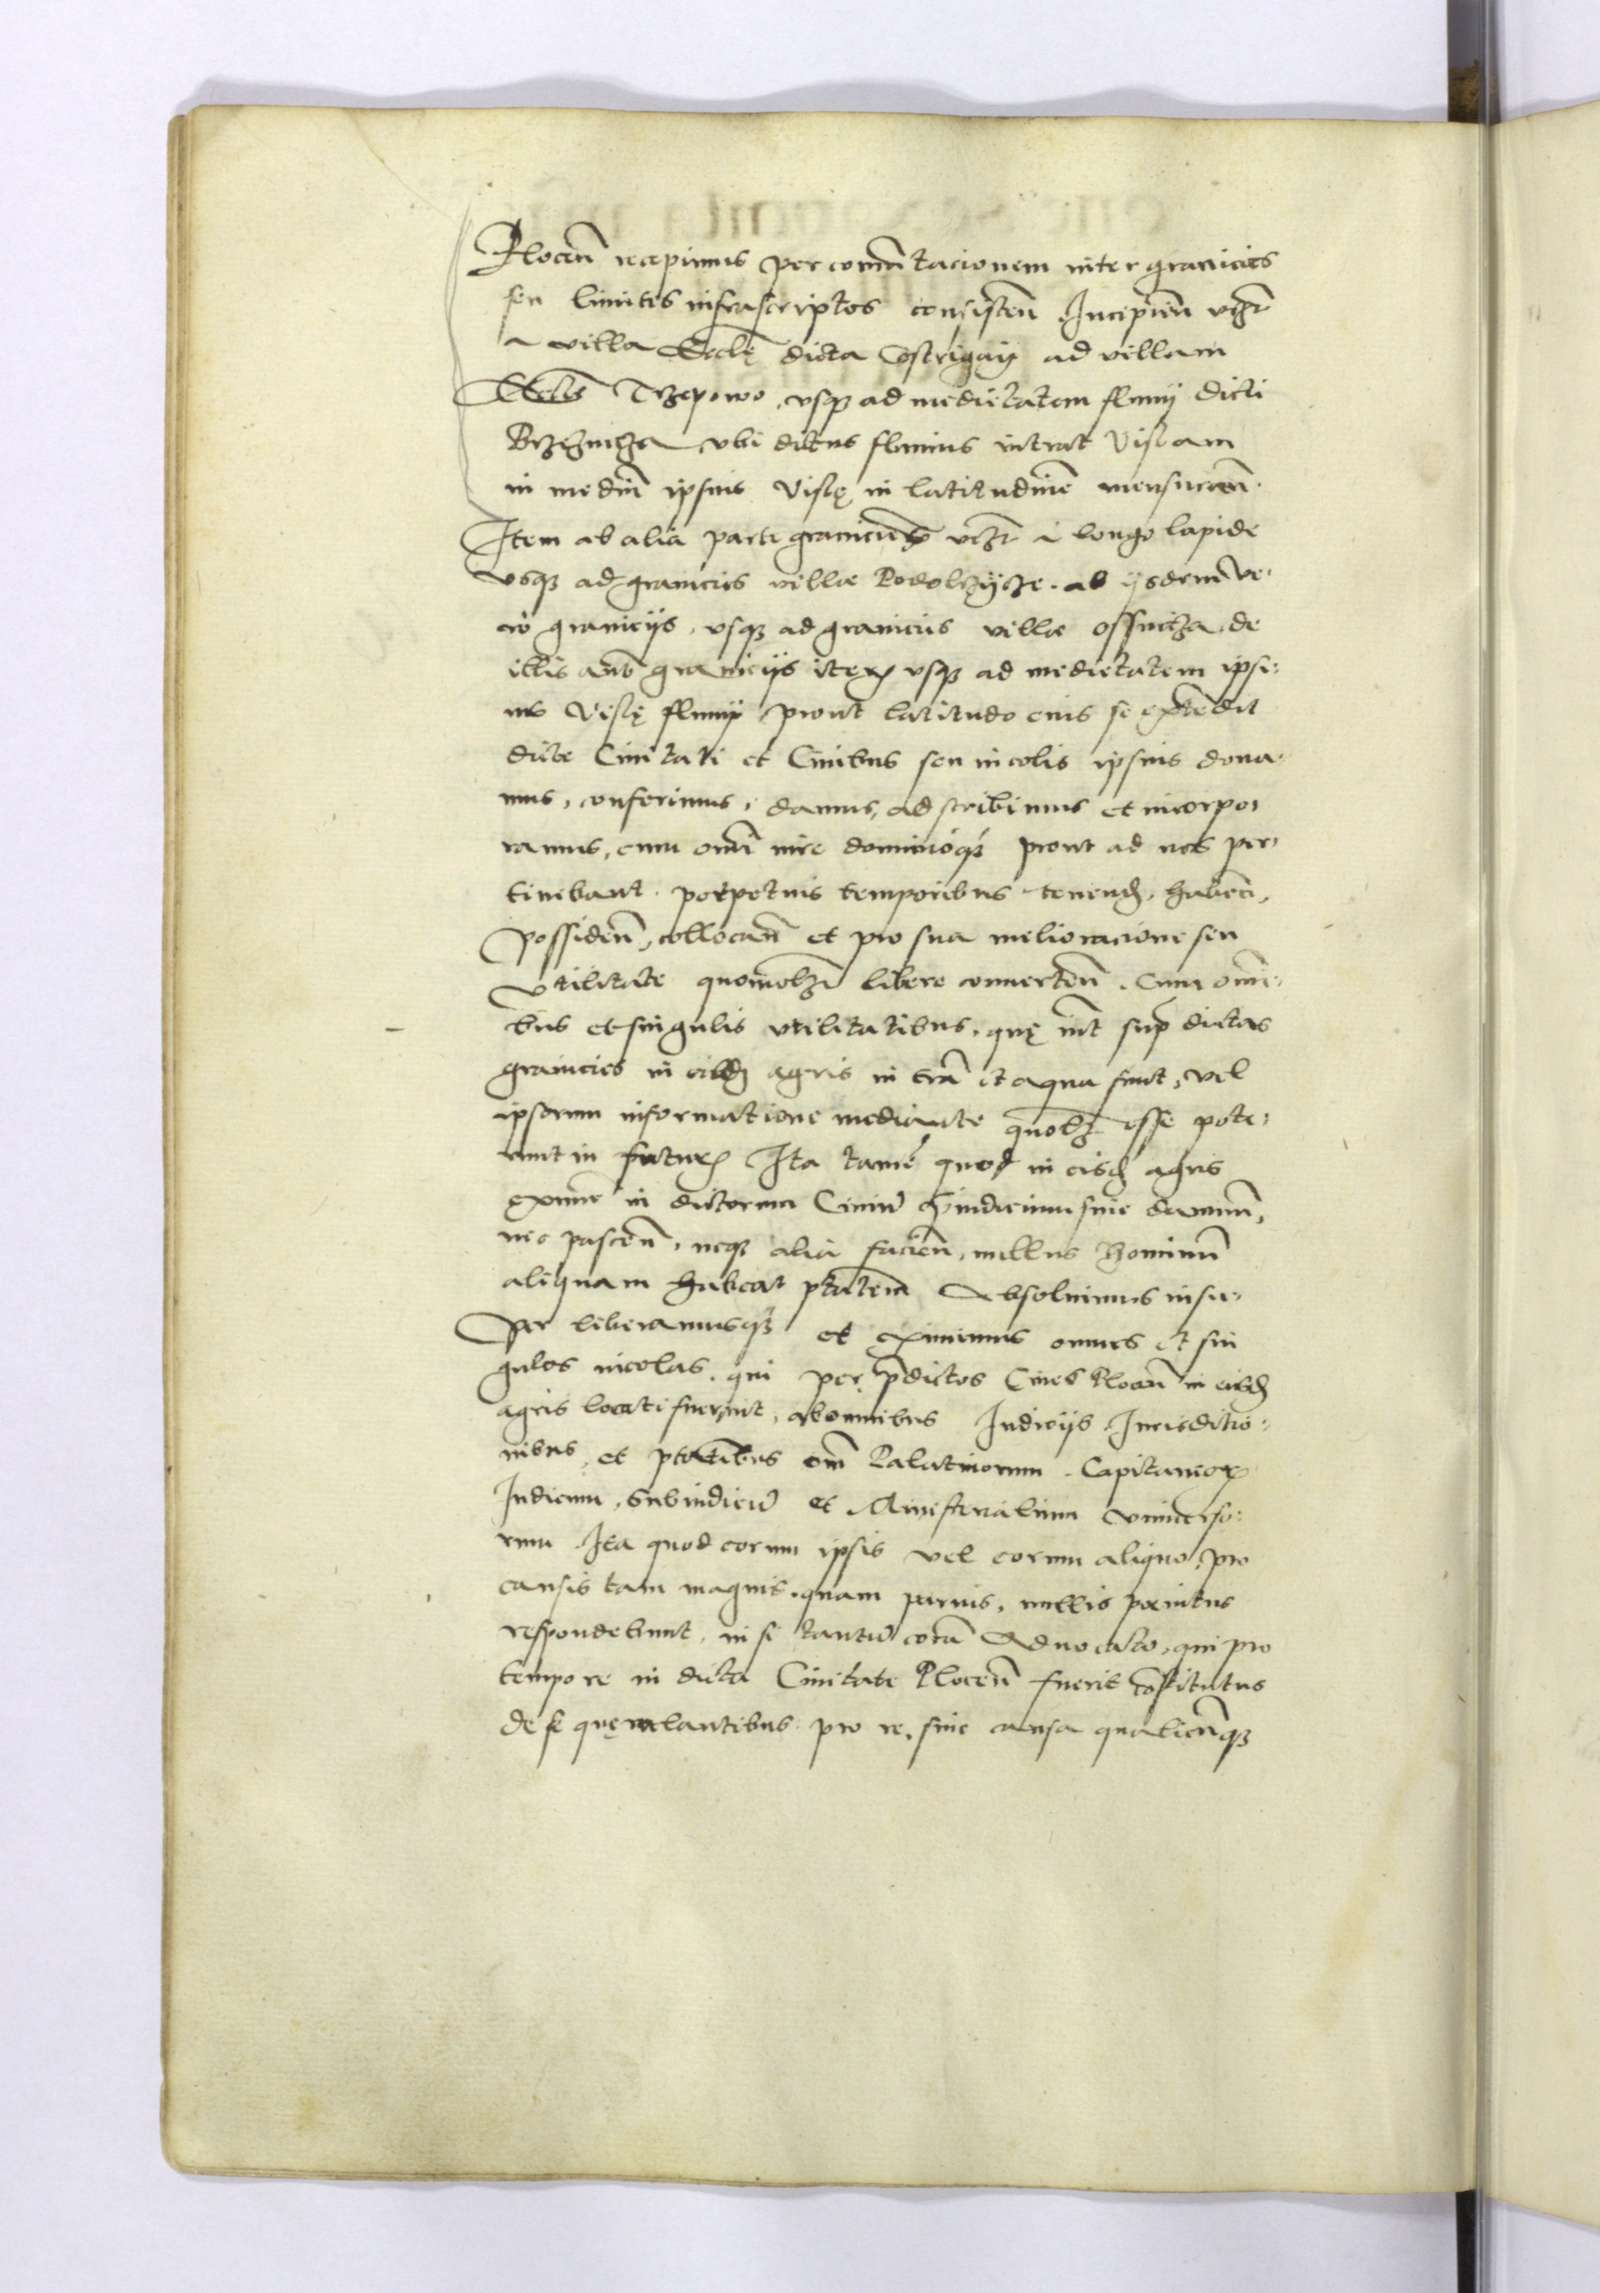 Plocen̄ recepimus per comm̄tacionem inter granicies
seu limites infrascriptos consisten̄ Incipien̄ vcȝt
a villa Eccłę dicta Costrigaij ad villam
Trzepowo, vsqȝ ad medietatem fluuij dicti
Brzeznicza vbi dictus fluuius intrat Vislam
in mediū ipsius Vislę in latitudinē mensuran̄.
Item ab alia parte vcȝt a longo lapide
vsqȝ ad granicies villæ Podolczijcze. ab ijsdem ve-
ro granicijs, vsqȝ ad granicies villæ ossnicza, de
illis aut̄ granicijs iteꝝ vsqȝ ad medietatem ipsi-
us Vislę fluuij prout latitudo eius se extēdit
dicte Ciuitati et Ciuibus seu incolis ipsius dona-
mus, conferimus, damus, adscribimus et incorpo-
ramus, cum omī iure dominioqȝ prout ad nos per-
tinebant. perpetuis temporibus tenend̄, haben̄,
possiden̄, collocan̄ et pro sua melioracione seu
Vtilitate quomolȝt libere conuerten̄. Cum omī-
bus et singulis vtilitatibus, quę int̄ sup̄dictas
granicies in eisd̄ agris in tr̄a et aqua sunt, vel
ipsorum informatione mediante quolȝt esse pote-
runt in futuꝝ Ita tamē quod in eisd̄ agris
in dictorum Ciuiū p̄iudicium siue damnū,
nec pascen̄, neqȝ alia facien̄, nullus hominū
aliquam habeat p̄tatem Absoluimus insu-
per liberamusqȝ et eximimus omnes et sin
gulos incolas, qui per p̄dictos Ciues Plocen̄ in eisd̄
agris locati fuerint, ab omnibus Iudicijs Iurisdictio-
nibus, et p̄tatibus om̄ Palatinorum, Capitaneoꝝ
Iudicum, Subiudicū et Ministerialium vniuerso-
rum Ita quod coram ipsis vel eorum aliquo, pro
causis tam magnis, quam paruis, nullis penitus
respondebunt, ni si tantū corā Aduocato, qui pro
tempore in dicta Ciuitate Plocen̄ fuerit cōstitutus
de se quęrelantibus pro re, siue causa qualicūqȝ